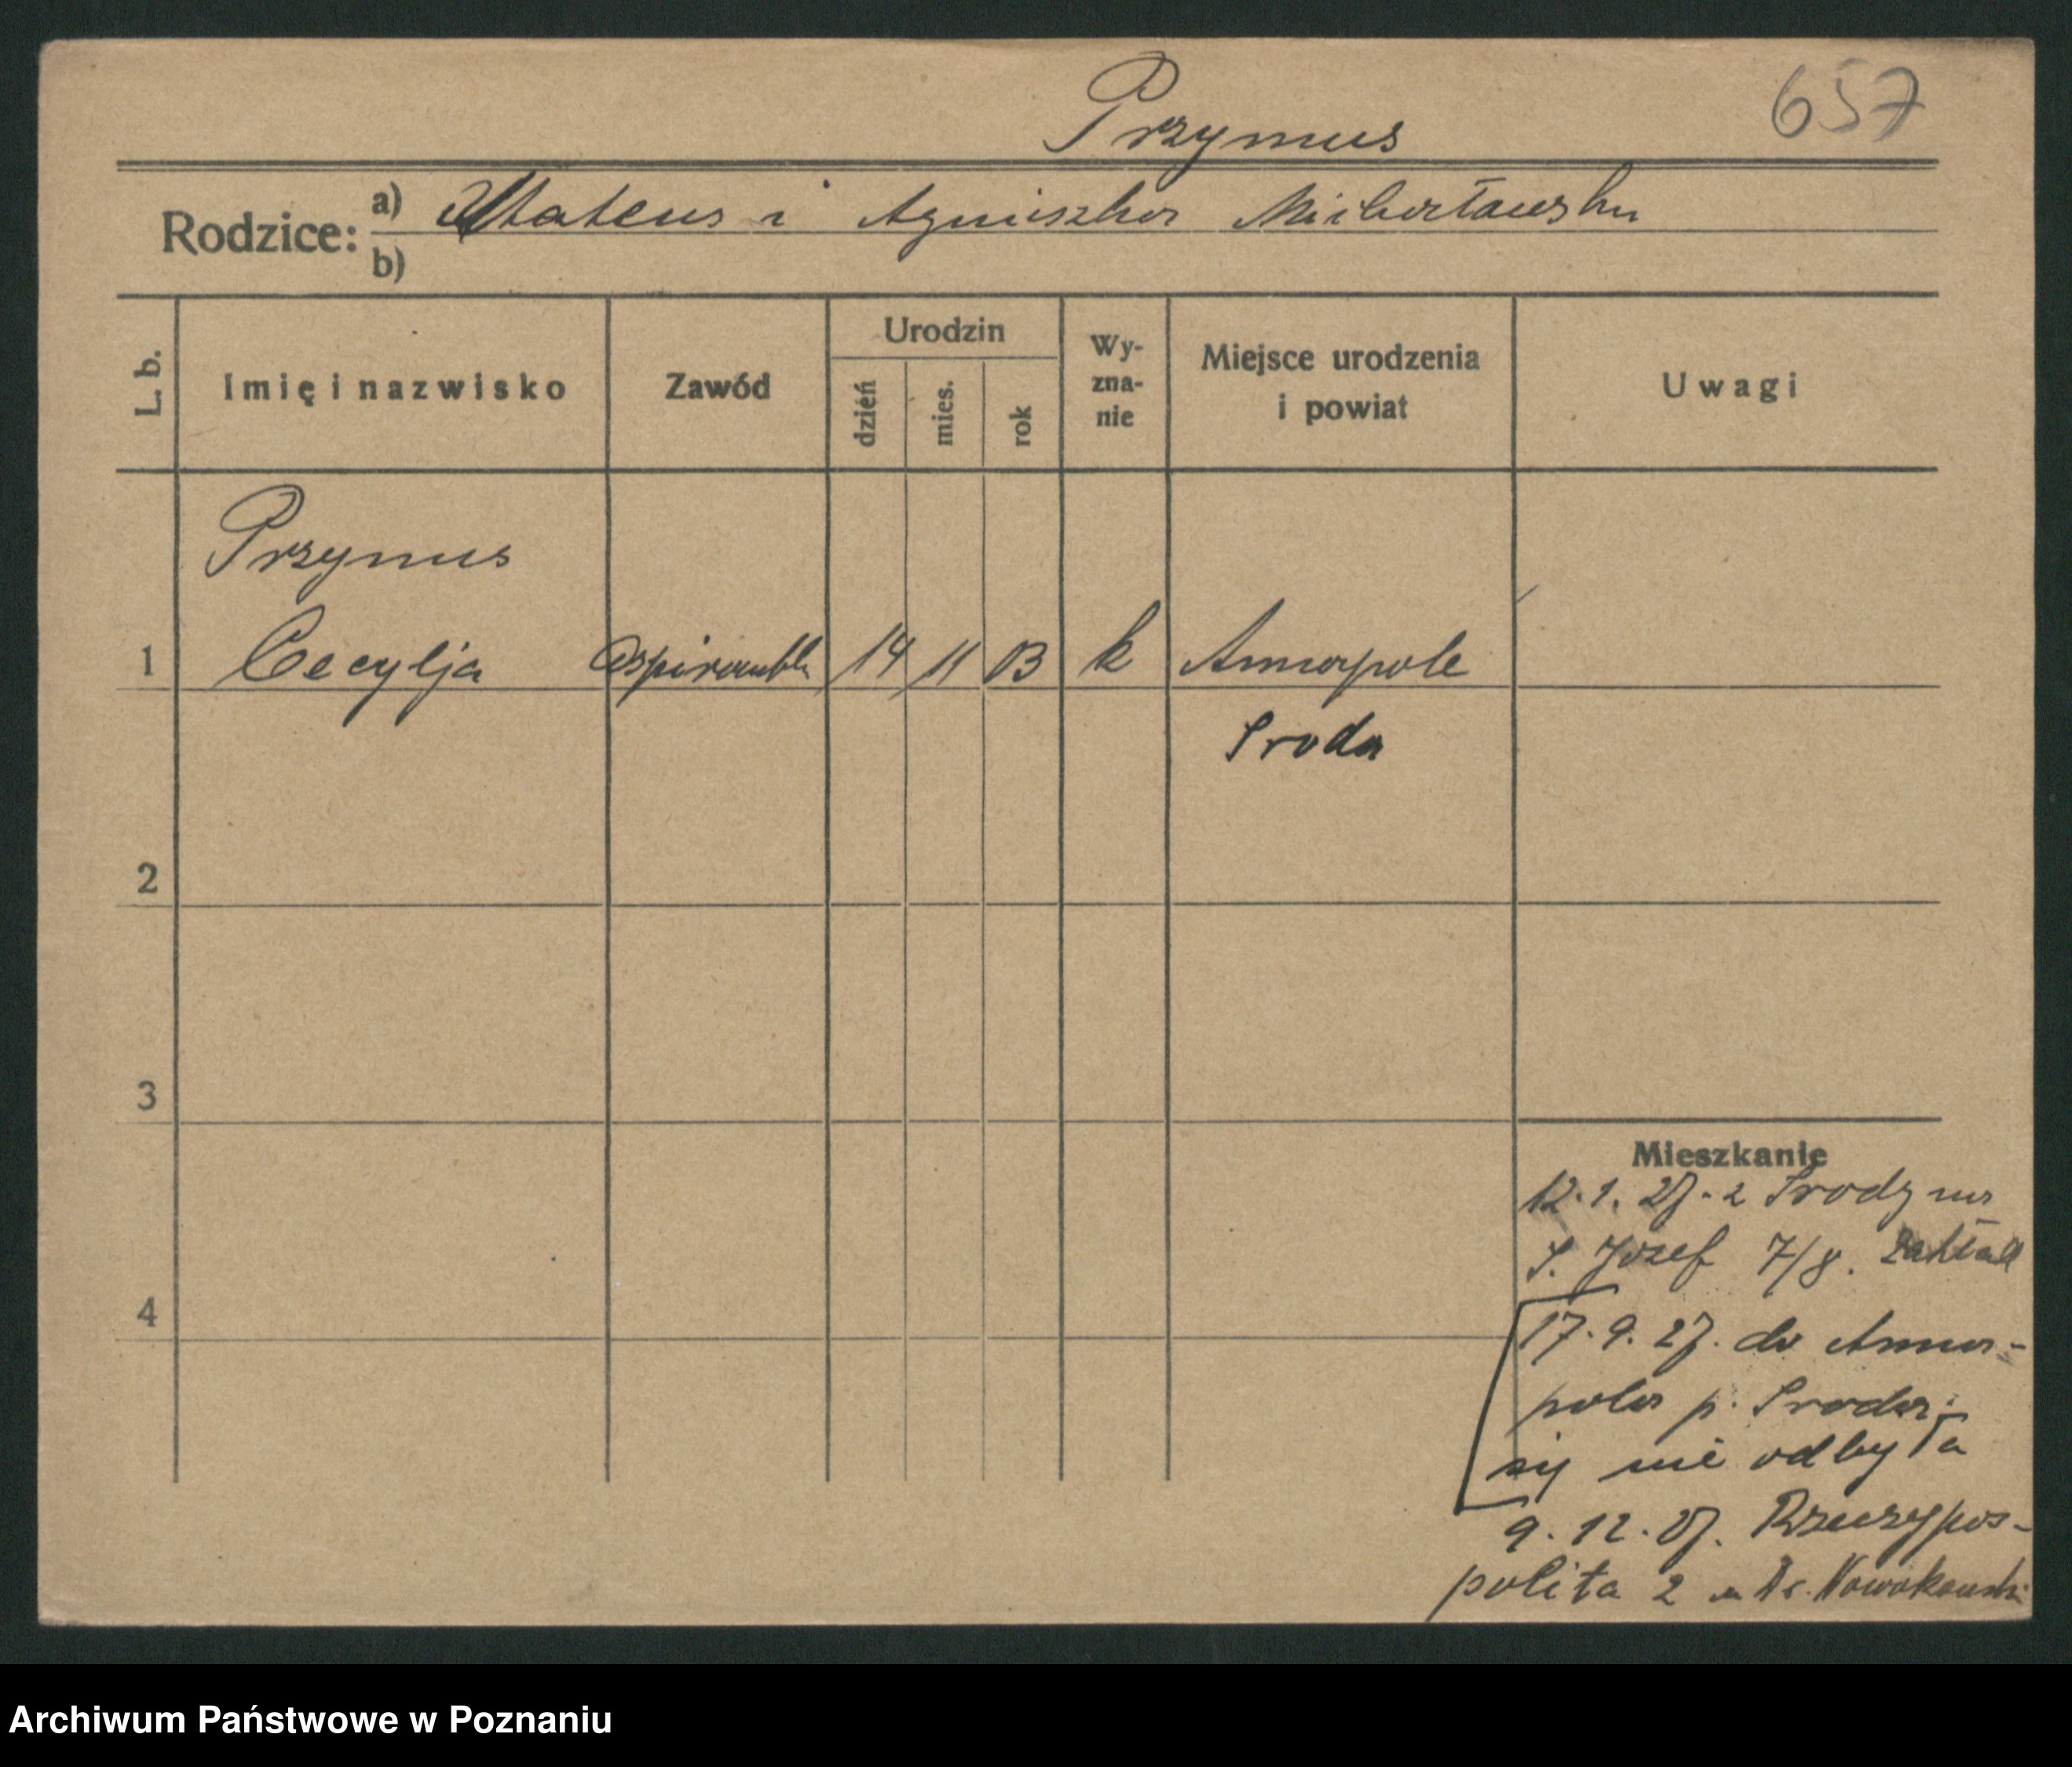 Przymus
657
Rodzice: a) Mateus i Agnieszka Michałowska
b)
L. b.
Imię i nazwisko
Zawód
Urodzin
dzień
mies.
rok
Wy-
zna-
nie
Miejsce urodzenia
i powiat
Uwagi
Przymus
1 Cecylja Aspirantka 14 11 03 k Annapole
Sroda
2
3
4
Mieszkanie
12.1.27. z Srody na
S. Józef 7/8. Zakład
17.9.27. do Anna-
pola p. Sroda
się nie odbyła
9.12.27. Rzeczypos-
polita 2 u Dr. Nowakowski
Archiwum Państwowe w Poznaniu